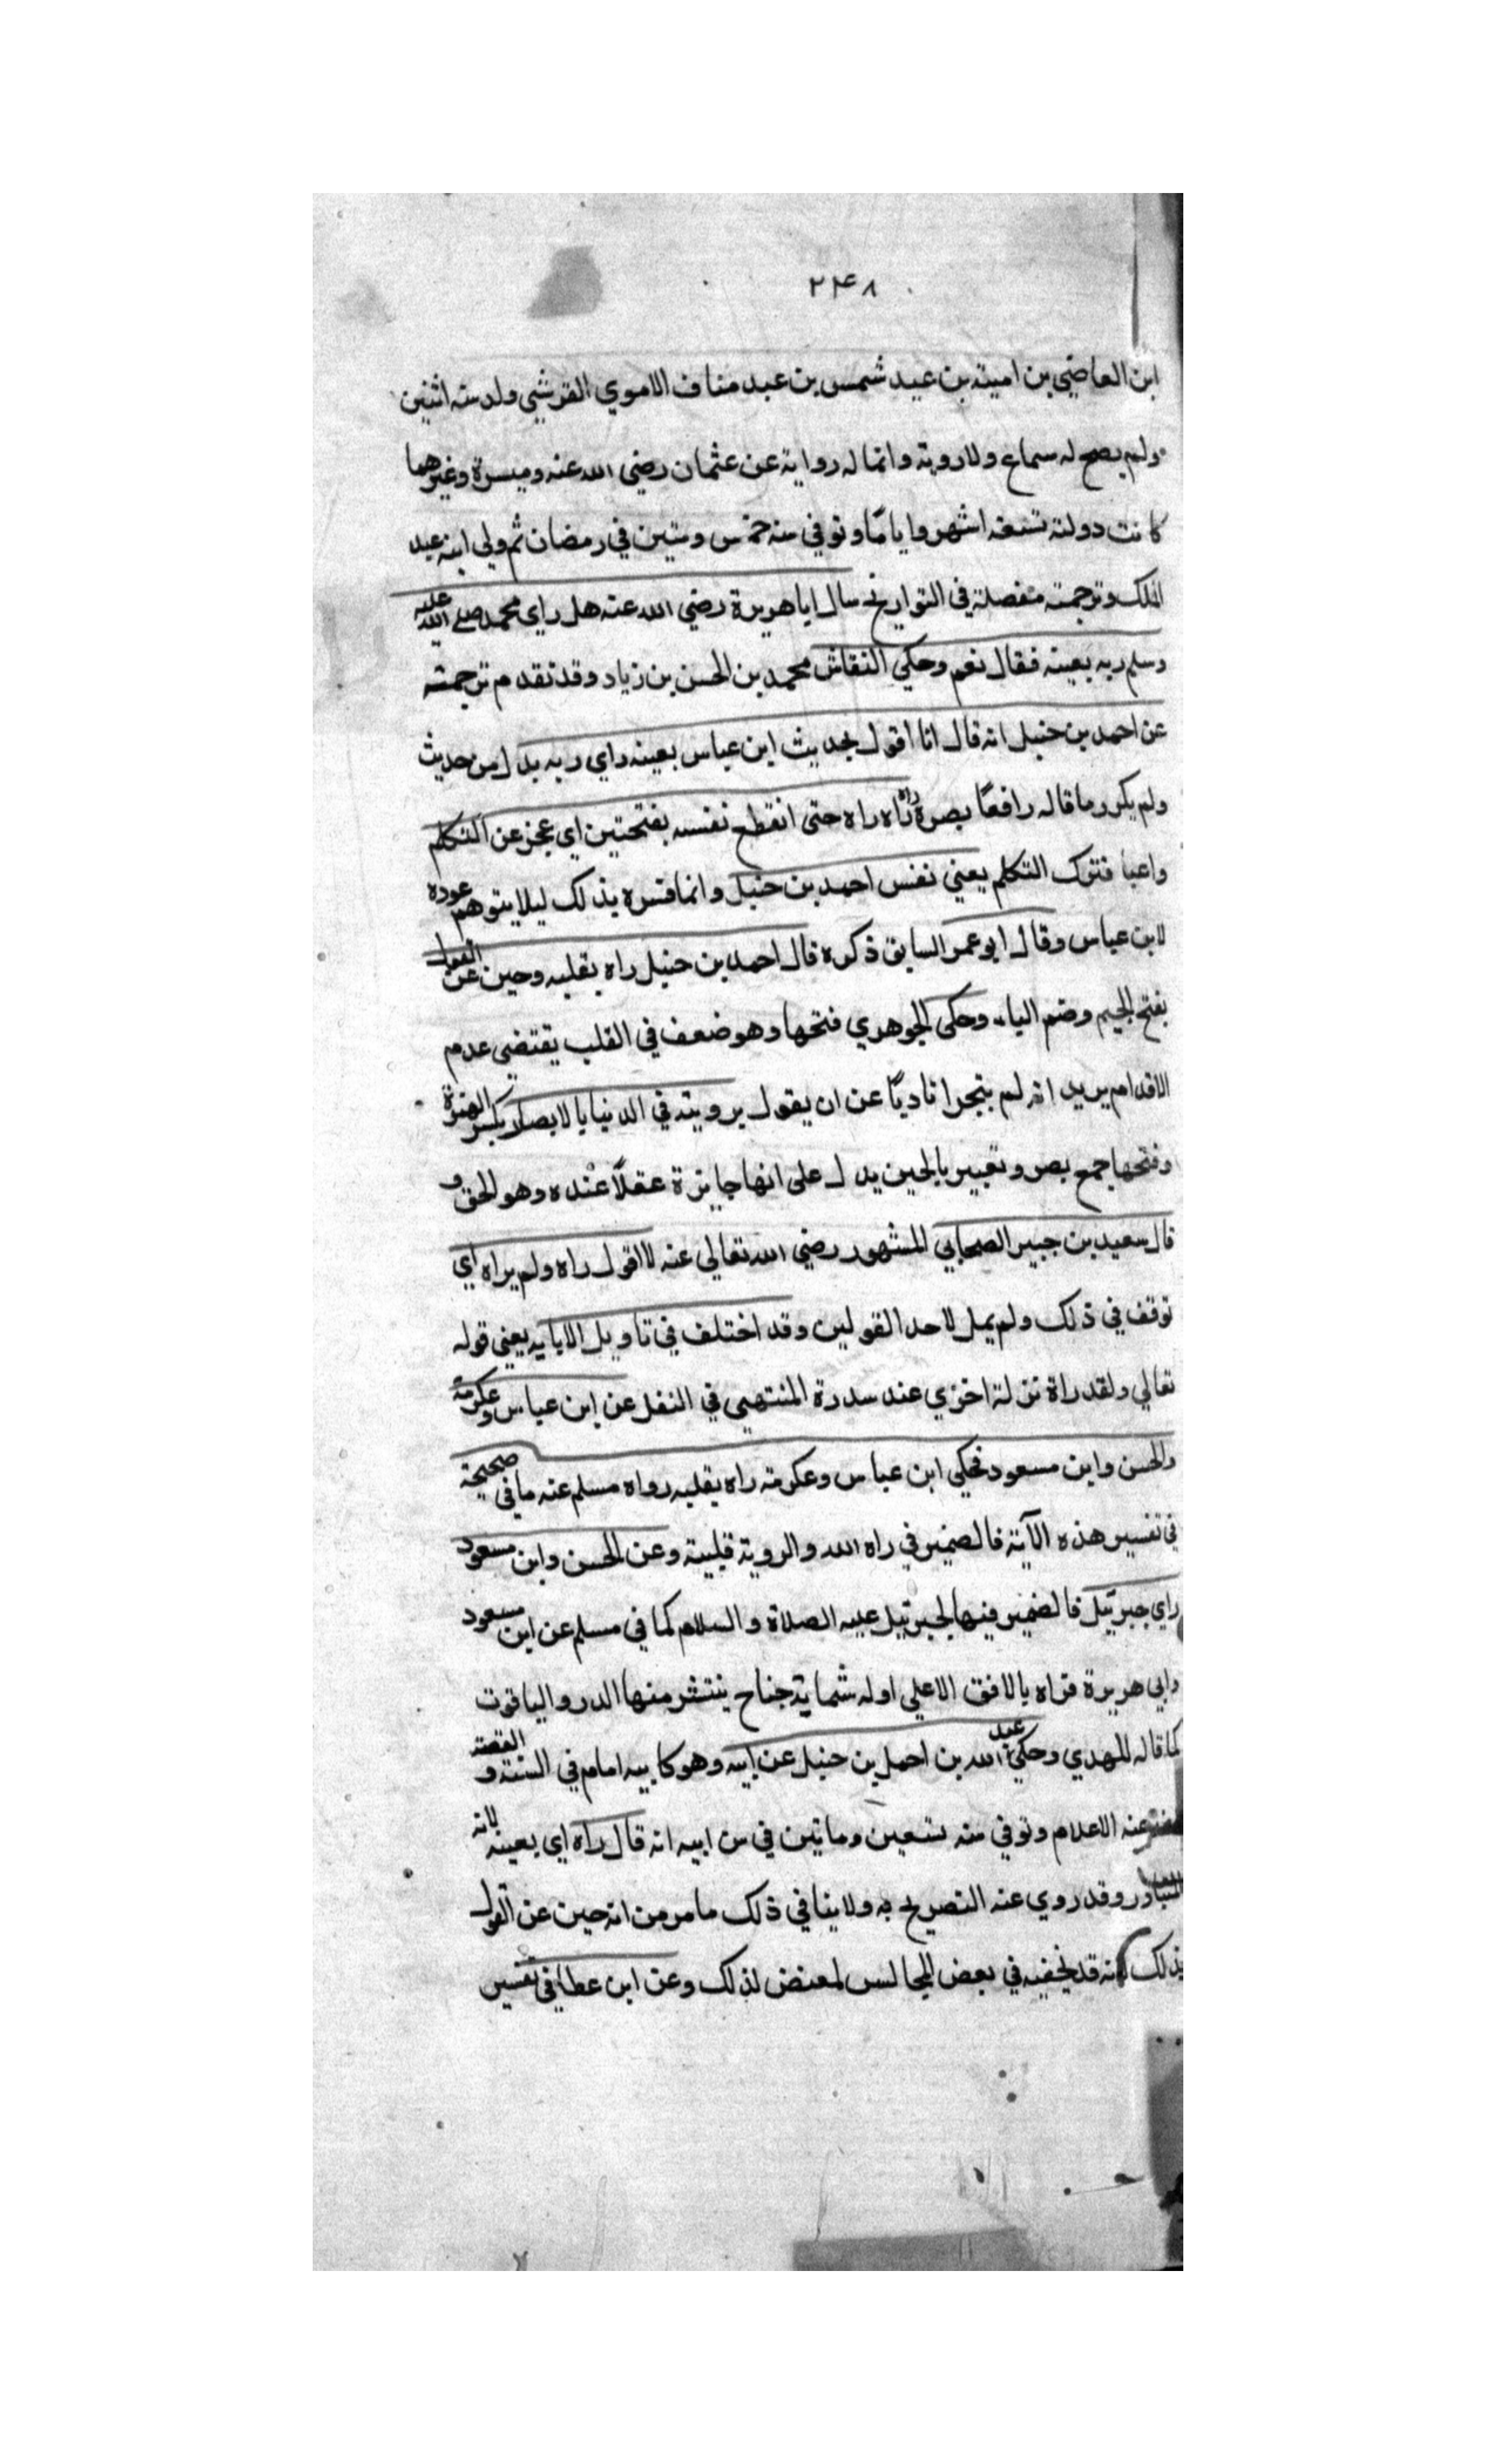 ٢٤٨
ابن العاضي بن امية بن عبد شمس بن عبد مناف الاموي القرشي ولد سنة اثنين
ولم يصح له سماع ولا روية وانما له رواية عن عثمان رضي الله عنه وميسرة وغيرهما
كانت دولته تسعة اشهر واياما وتوفي سنه خمس وستين في رمضان ثم ولي ابنه عبد
الملك وترجمته مفصلة في التواريخ سال ابا هريرة رضي الله عنه هل راي محمد صلي الله عليه
وسلم ربه بعينه فقال نعم وحكي النقاش محمد بن الحسن بن زياد وقد تقدم ترجمته
عن احمد بن حنبل انه قال انا اقول بحديث ابن عباس بعينه راي ربه بدل من حديث
ولم يكرر ما قاله رافعًا بصره راه راه راه حتى انقطع نفسه بفتحتين اي عجز عن التكلم
واعيا فترك التكلم يعني نفس احمد بن حنبل وانما فسره بذلك ليلا يتوهم عوده
لابن عباس وقال ابو عمر السابق ذكره قال احمد بن حنبل راه بقلبه وجبن عن القول
بفتح الجيم وضم الباء وحكى الجوهري فتحها وهو ضعف في القلب يقتضي عدم
الاقدام يريد انه لم يتجرا تاديًا عن ان يقول برويته في الدنيا بالابصار بكسر الهمزة
وفتحها جمع بصر وتعبير بالجبن يدل على انها جايزة عقلًا عنده وهو الحق و
قال سعيد بن جبير الصحابي المشهور رضي الله تعالي عنه لا اقول راه ولم يراه اي
توقف في ذلك ولم يمل لاحد القولين وقد اختلف في تاويل الاياية يعني قوله
تعالي ولقد راة نزلة اخري عند سدرة المنتهى في النفل عن ابن عباس وعكرمة
والحسن وابن مسعود فحكي ابن عباس وعكرمة راه بقلبه رواه مسلم عنه ما في صحيحة
في تفسير هذه الآية فالضمير في راه الله والروية قلبية وعن الحسن وابن مسعود
راي جبرئيل فالضمير فيها لجبرئيل عليه الصلاة والسلام كما في مسلم عن ابن مسعود
وابي هريرة فراه بالافق الاعلي اوله شماية جناح ينتشر منها الدر والياقوت
كما قاله المهدي وحكي عبد الله بن احمد بن حنبل عن ابيه وهو كابيه امام في السنة و القصة
عنه الاعلام وتوفي سنه تسعين وماتين في سن ابيه انه قال راه اي بعينه لانه
المتبادر وقد روي عنه التصريح به ولا ينافي ذلك ما مر من انه جبن عن القول
بذلك لانه قد يخفيه في بعض المجالس لمعنض لذلك وعن ابن عطا في تفسير